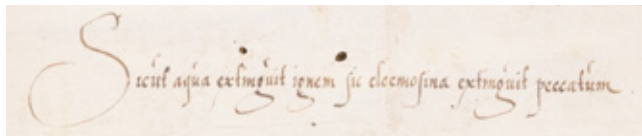 Sicut aqua extinguit ignem sic eleemosina extinguit peccatum.